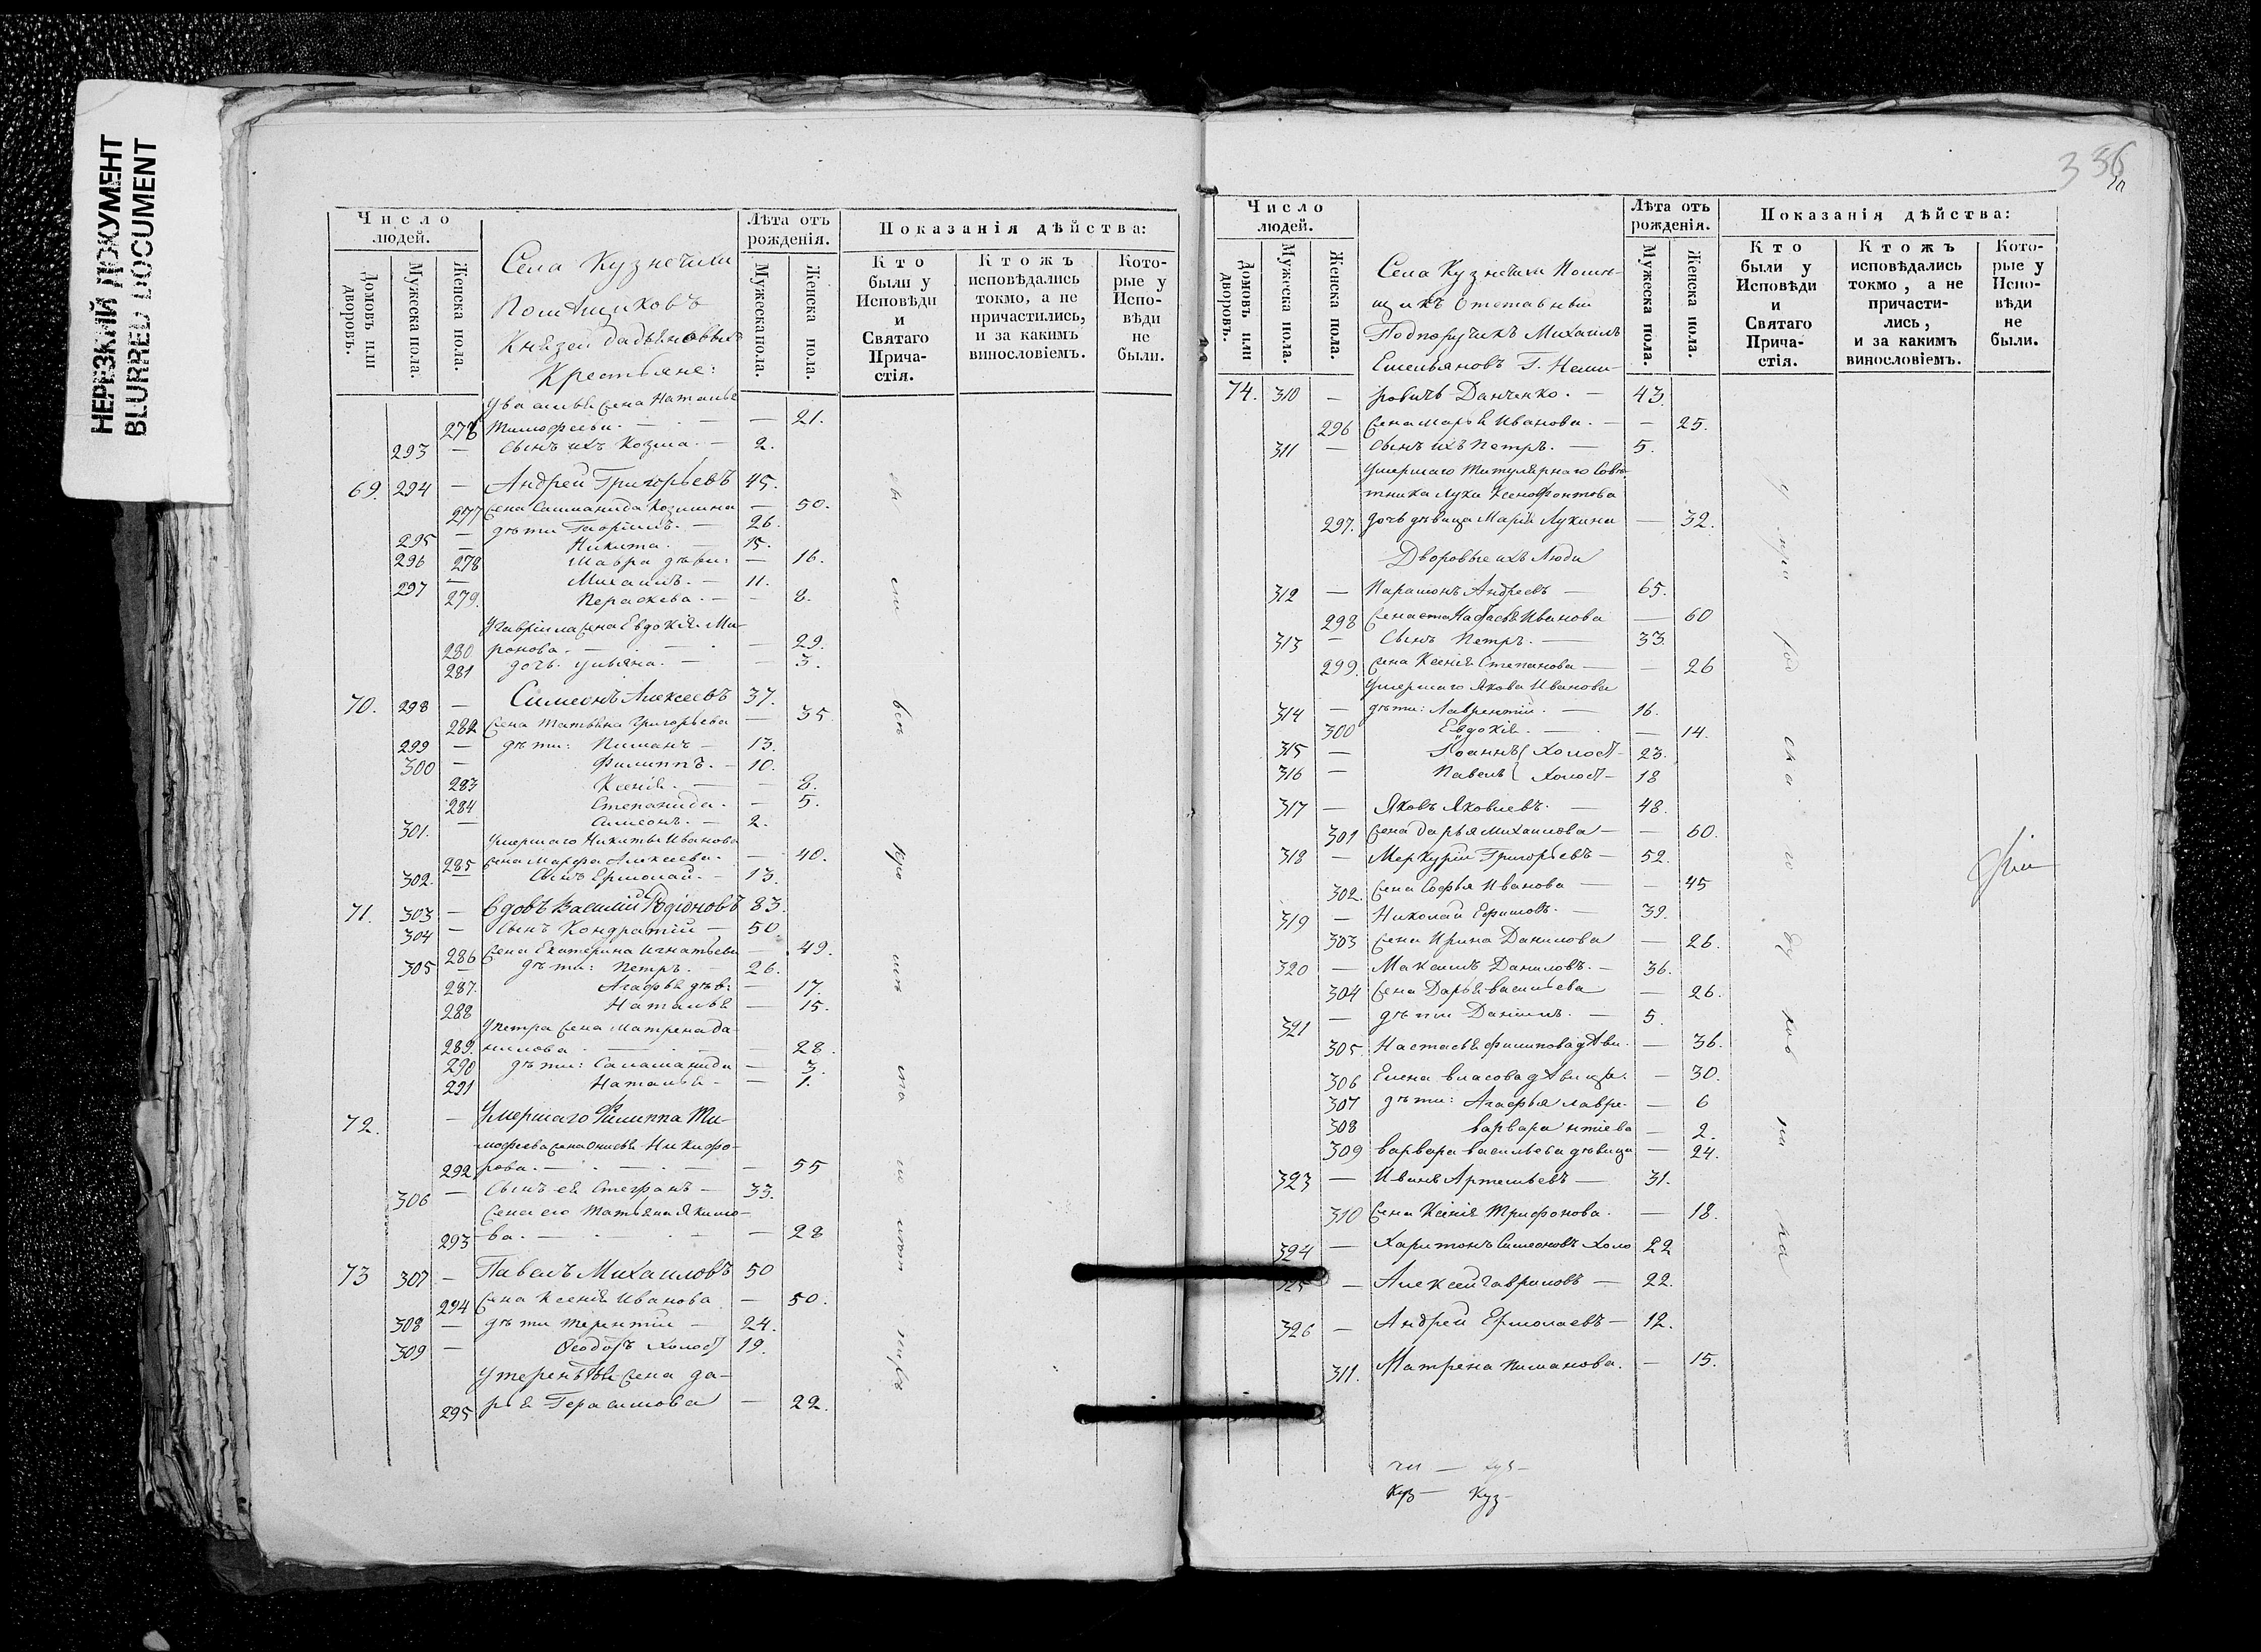 НЕРЕЗКИЙ ДОКУМЕНТ
BLURRED DOCUMENT
Число людей.
Домовъ или дворовъ.
Мужеска пола.
Женска пола.
Села Кузнечихи
Помѣщиковъ
Князей Дадьяновыхъ
Крестьяне:
Лѣта отъ рожденія.
Мужеска пола.
Женска пола.
Показанія дѣйства:
Кто были у Исповѣди и Святаго Прича-стія.
Ктожъ исповѣдались токмо, а не причастились, и за какимъ винословіемъ.
Кото-рые у Испо-вѣди не были.
жена Наталья
276 Тимофеева. — — 21.
293 — Сынъ ихъ Козма. — 2.
69. 294 — Андрей Григорьевъ 45.
277 жена Козмина — 50.
295 — дѣти Гавріилъ. — 26.
296 — Никита. — 15.
278 Мавра дѣви: — 16.
297 — Михаилъ. — 11.
279. Параскева. — — 8.
У Гавріила жена Евдокія Ми-
280 ронова. — — 29.
281 дочь Ульяна. — — 3.
70. 298 — Симеонъ Алексеевъ 37.
282 жена Татьяна Григорьева — 35.
299 — дѣти: Пиманъ — 13.
300 — Филиппъ. — 10.
283 Ксенія. — — 8.
284 Степанида. — 5.
301. — Симеонъ. — 2.
Умершаго Никиты Иванова
285 жена Марфа Алексеева. — 40.
302. — Сынъ Ермолай. — 13.
71. 303 — Вдовъ Василій Родіоновъ 83.
304 — Сынъ Кондратій — 50.
286 жена Екатерина Игнатьева — 49.
305 — дѣти: Петръ. — 26.
287. Агафья дѣв: — 17.
288 Наталья — 15.
У Петра жена Матрена Да-
289. нилова — — 28.
290 дѣти: Саламанида — 3.
291 Наталья — — 1.
72. — Умершаго Филиппа Ти-
мофеева жена Никифо-
292 рова. — — 55
306 — Сынъ ея Стефанъ — 33.
жена его Татьяна Якимо-
293 ва. — — 28
73 307 — Павелъ Михаиловъ 50
294 жена Ксенія Иванова — 50.
308 — дѣти Терентій — 24.
309 — Ѳеодоръ холост 19.
У Терентія жена Да-
295 рья Герасимова — 22.
336
Число людей.
Домовъ или дворовъ.
Мужеска пола.
Женска пола.
Села Кузнечихи Помѣ-
щикъ Отставный
Подпоручикъ Михаилъ
Емельяновъ Г. Неми-
Лѣта отъ рожденія.
Мужеска пола.
Женска пола.
Показанія дѣйства:
Кто были у Исповѣди и Святаго Прича-стія.
Ктожъ исповѣдались токмо, а не причасти-лись, и за какимъ винословіемъ.
Кото-рые у Испо-вѣди не были.
74. 310 — ровичъ Данченко. — 43.
296 жена Марья Иванова. — — 25.
311 — Сынъ ихъ Петръ. — 5.
Умершаго Титулярнаго Совѣ-
тника Луки Ксенофонтова
297. дочь дѣвица Марія Лукина — 32.
Дворовые ихъ Люди
312 — Парамонъ Андреевъ — 65.
298 жена Иванова — 60
313 — Сынъ Петръ. — 33.
299. жена Ксенія Степанова — — 26
Умершаго Якова Иванова
314 — дѣти: Лаврентій. — 16.
300 Евдокія. — — 14.
315 — Іоаннъ холост — 23.
316 — Павелъ холост — 18
317 — Яковъ Яковлевъ. — 48.
301 жена Дарья Михаилова — — 60.
318 — Меркурій Григорьевъ — 52.
302. жена Софья Иванова — — 45
319 — Николай Ефимовъ. — 39.
303 жена Ирина Данилова — 26.
320 — Максимъ Даниловъ. — 36.
304 жена Дарья Васильева — 26.
321 — дѣти Даніилъ. — 5.
305. Настасья Филипова дѣви. — 36.
306 Елена Власова дѣвица. — 30.
307 дѣти: Агафья Лавре- — 6
308 Варвара нтіева — 2.
309 Варвара Васильева дѣвица — 24.
323 — Иванъ Артемьевъ — 31.
310 жена Ксенія Трифонова. — 18.
324 — Харитонъ Симеоновъ холо 22
325 — Алексей Гавриловъ — 22.
326 — Андрей Ермолаевъ — 12.
311. Матрена Пиманова. — 15.
Куз — Куз —